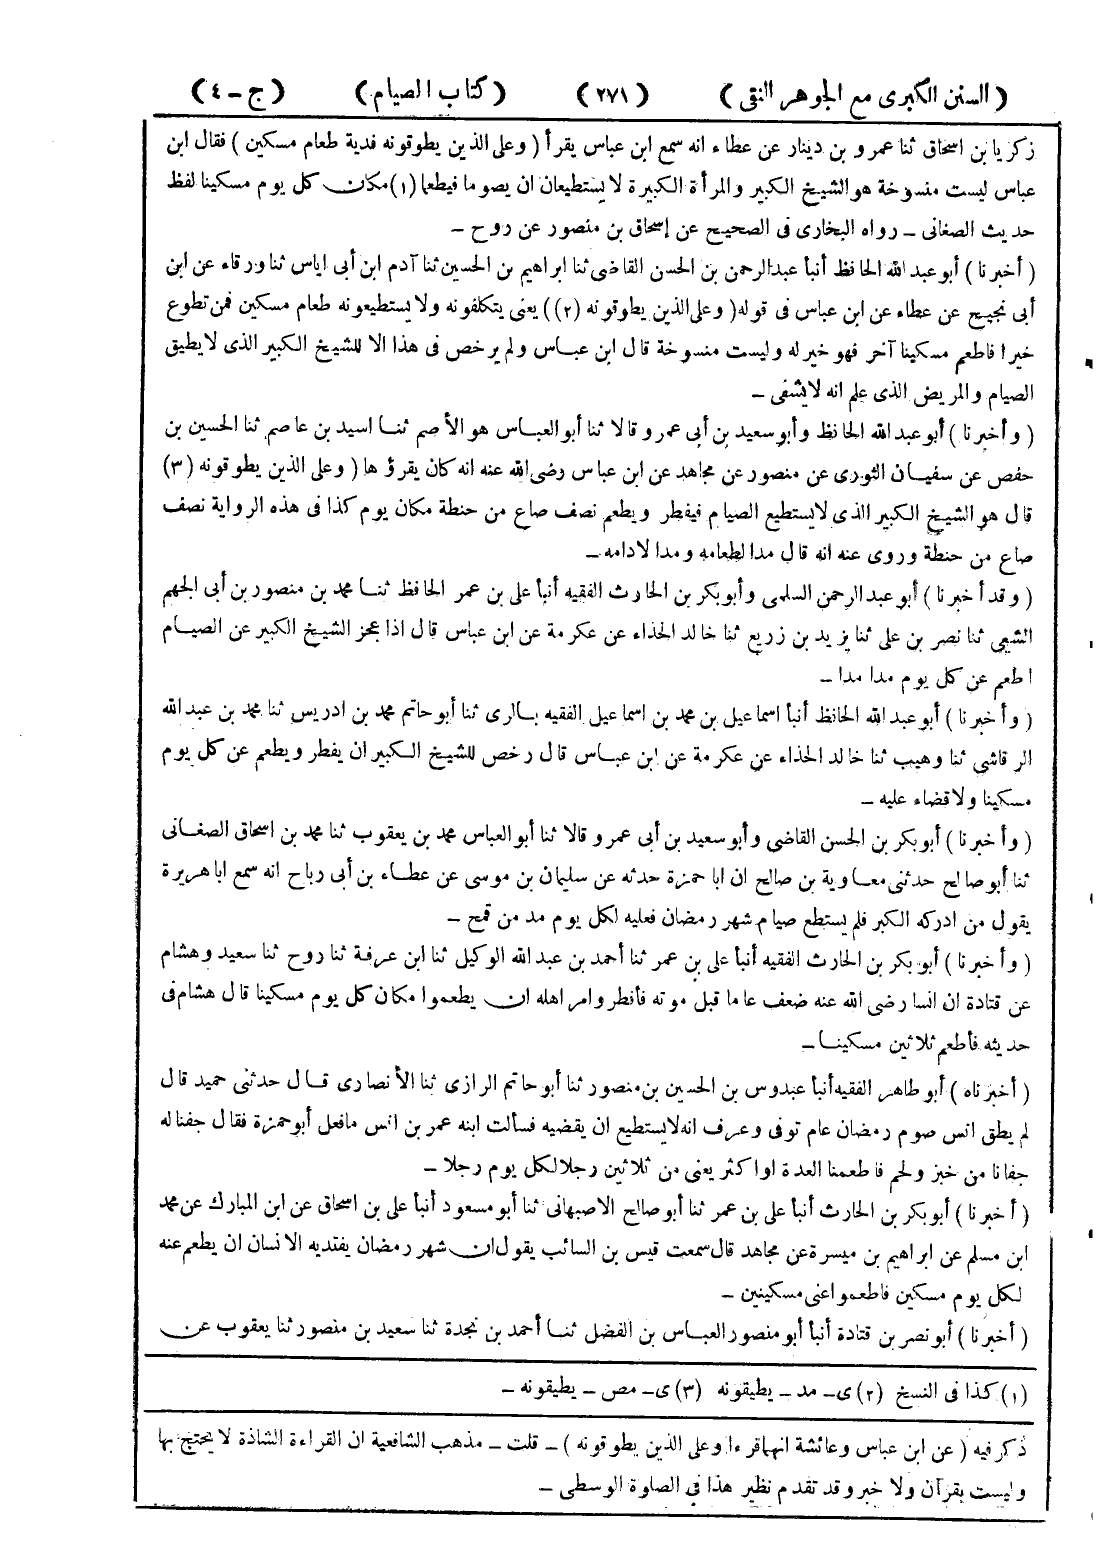 (السنن الكبرى مع الجوهر النقى) (٢٧١) (كتاب الصيام) (ج - ٤)
زكريا بن اسحاق ثنا عمرو بن دينار عن عطاء انه سمع ابن عباس يقرأ (وعلى الذين يطوقونه فدية طعام مسكين) فقال ابن
عباس ليست منسوخة هو الشيخ الكبير والمرأة الكبيرة لا يستطيعان ان يصوما فيطعما (١) مكان كل يوم مسكينا لفظ
حديث الصغانى - رواه البخارى فى الصحيح عن إسحاق بن منصور عن روح -
(أخبرنا) أبو عبد الله الحافظ أنبأ عبد الرحمن بن الحسن القاضى ثنا ابراهيم بن الحسين ثنا آدم ابن أبى اياس ثنا ورقاء عن ابن
أبى نجيح عن عطاء عن ابن عباس فى قوله (وعلى الذين يطوقونه (٢)) يعنى يتكلفونه ولا يستطيعونه طعام مسكين فمن تطوع
خيرا فاطعم مسكينا آخر فهو خير له وليست منسوخة قال ابن عباس ولم يرخص فى هذا الا للشيخ الكبير الذى لا يطيق
الصيام والمريض الذى علم انه لا يشفى -
(وأخبرنا) أبو عبد الله الحافظ وأبو سعيد بن أبى عمرو قالا ثنا أبو العباس هو الأصم ثنا اسيد بن عاصم ثنا الحسين بن
حفص عن سفيان الثورى عن منصور عن مجاهد عن ابن عباس رضى الله عنه انه كان يقرؤها (وعلى الذين يطوقونه (٣)
قال هو الشيخ الكبير الذى لا يستطيع الصيام فيفطر ويطعم نصف صاع من حنطة مكان يوم كذا فى هذه الرواية نصف
صاع من حنطة وروى عنه انه قال مدا لطعامه ومدا لادامه -
(وقد أخبرنا) أبو عبد الرحمن السلمى وأبو بكر بن الحارث الفقيه أنبأ على بن عمر الحافظ ثنا محمد بن منصور بن أبى الجهم
الشيعى ثنا نصر بن على ثنا يزيد بن زريع ثنا خالد الحذاء عن عكرمة عن ابن عباس قال اذا عجز الشيخ الكبير عن الصيام
اطعم عن كل يوم مدا مدا -
(وأخبرنا) أبو عبد الله الحافظ أنبأ اسماعيل بن محمد بن اسماعيل الفقيه بالرى ثنا أبو حاتم محمد بن ادريس ثنا محمد بن عبد الله
الرقاشى ثنا وهيب ثنا خالد الحذاء عن عكرمة عن ابن عباس قال رخص للشيخ الكبير ان يفطر ويطعم عن كل يوم
مسكينا ولا قضاء عليه -
(وأخبرنا) أبو بكر بن الحسن القاضى وأبو سعيد بن أبى عمرو قالا ثنا أبو العباس محمد بن يعقوب ثنا محمد بن اسحاق الصغانى
ثنا أبو صالح حدثنى معاوية بن صالح ان ابا حمزة حدثه عن سليمان بن موسى عن عطاء بن أبى رباح انه سمع ابا هريرة
يقول من ادركه الكبر فلم يستطع صيام شهر رمضان فعليه لكل يوم مد من قمح -
(وأخبرنا) أبو بكر بن الحارث الفقيه أنبأ على بن عمر ثنا أحمد بن عبد الله الوكيل ثنا ابن عرفة ثنا روح ثنا سعيد وهشام
عن قتادة ان انسا رضى الله عنه ضعف عاما قبل موته فأفطر وامر اهله ان يطعموا مكان كل يوم مسكينا قال هشام فى
حديثه فأطعم ثلاثين مسكينا -
(أخبرناه) أبو طاهر الفقيه أنبأ عبدوس بن الحسين بن منصور ثنا أبو حاتم الرازى ثنا الأنصارى قال حدثنى حميد قال
لم يطق انس صوم رمضان عام توفى وعرف انه لا يستطيع ان يقضيه فسألت ابنه عمر بن انس ما فعل أبو حمزة فقال جفنا له
جفانا من خبز ولحم فاطعمنا العدة او اكثر يعنى من ثلاثين رجلا لكل يوم رجلا -
(أخبرنا) أبو بكر بن الحارث أنبأ على بن عمر ثنا أبو صالح الاصبهانى ثنا أبو مسعود أنبأ على بن اسحاق عن ابن المبارك عن محمد
ابن مسلم عن ابراهيم بن ميسرة عن مجاهد قال سمعت قيس بن السائب يقول ان شهر رمضان يفتديه الانسان ان يطعم عنه
لكل يوم مسكين فاطعموا عنى مسكينين -
(أخبرنا) أبو نصر بن قتادة أنبأ أبو منصور العباس بن الفضل ثنا أحمد بن نجدة ثنا سعيد بن منصور ثنا يعقوب عن
(١) كذا فى النسخ (٢) ى - مد - يطيقونه (٣) ى - مص - يطيقونه -
ذكر فيه (عن ابن عباس وعائشة انهما قرءا وعلى الذين يطوقونه) - قلت - مذهب الشافعية ان القراءة الشاذة لا يحتج بها
وليست بقرآن ولا خبر وقد تقدم نظير هذا فى الصلوة الوسطى -